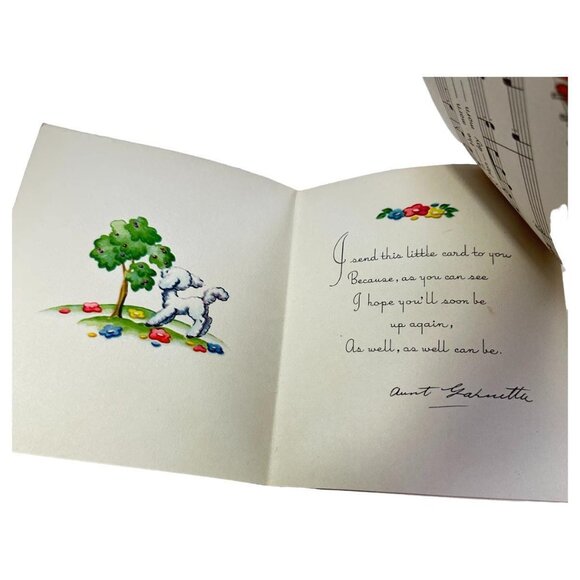 I send this little card to you
Because, as you can see
I hope you'll soon be
up again,
As well, as well can be.
Aunt